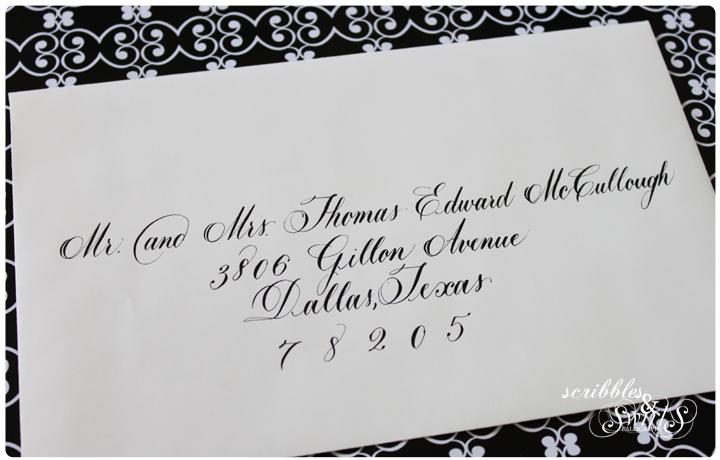 Mr. and Mrs. Thomas Edward McCullough
3806 Gillon Avenue
Dallas, Texas
78205
scribbles
& Swirls